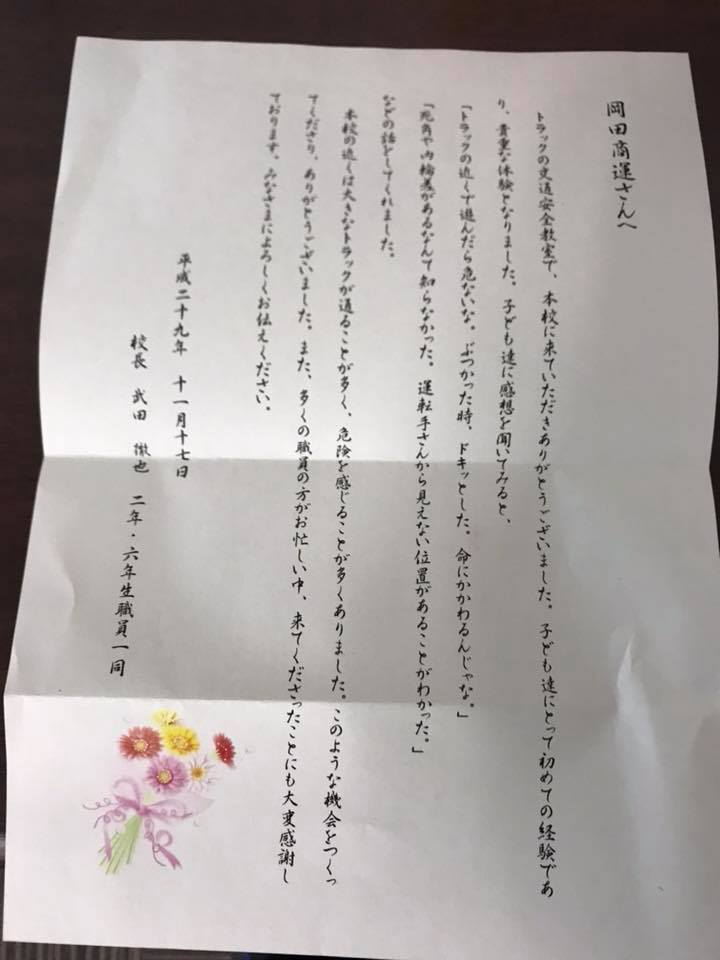 岡田商運さんへ
トラックの交通安全教室で、本校に来ていただきありがとうございました。子ども達にとって初めての経験であ
り、貴重な体験となりました。子ども達に感想を聞いてみると、
「トラックの近くで遊んだら危ないな。ぶつかった時、ドキッとした。命にかかわるんじゃな。」
「死角や内輪差があるなんて知らなかった。運転手さんから見えない位置があることがわかった。」
などの話をしてくれました。
本校の近くは大きなトラックが通ることが多く、危険を感じることが多くありました。このような機会をつくっ
てくださり、ありがとうございました。また、多くの職員の方がお忙しい中、来てくださったことにも大変感謝し
ております。みなさまによろしくお伝えください。
平成二十九年 十一月十七日
校長 武田 徹也 二年・六年生職員一同